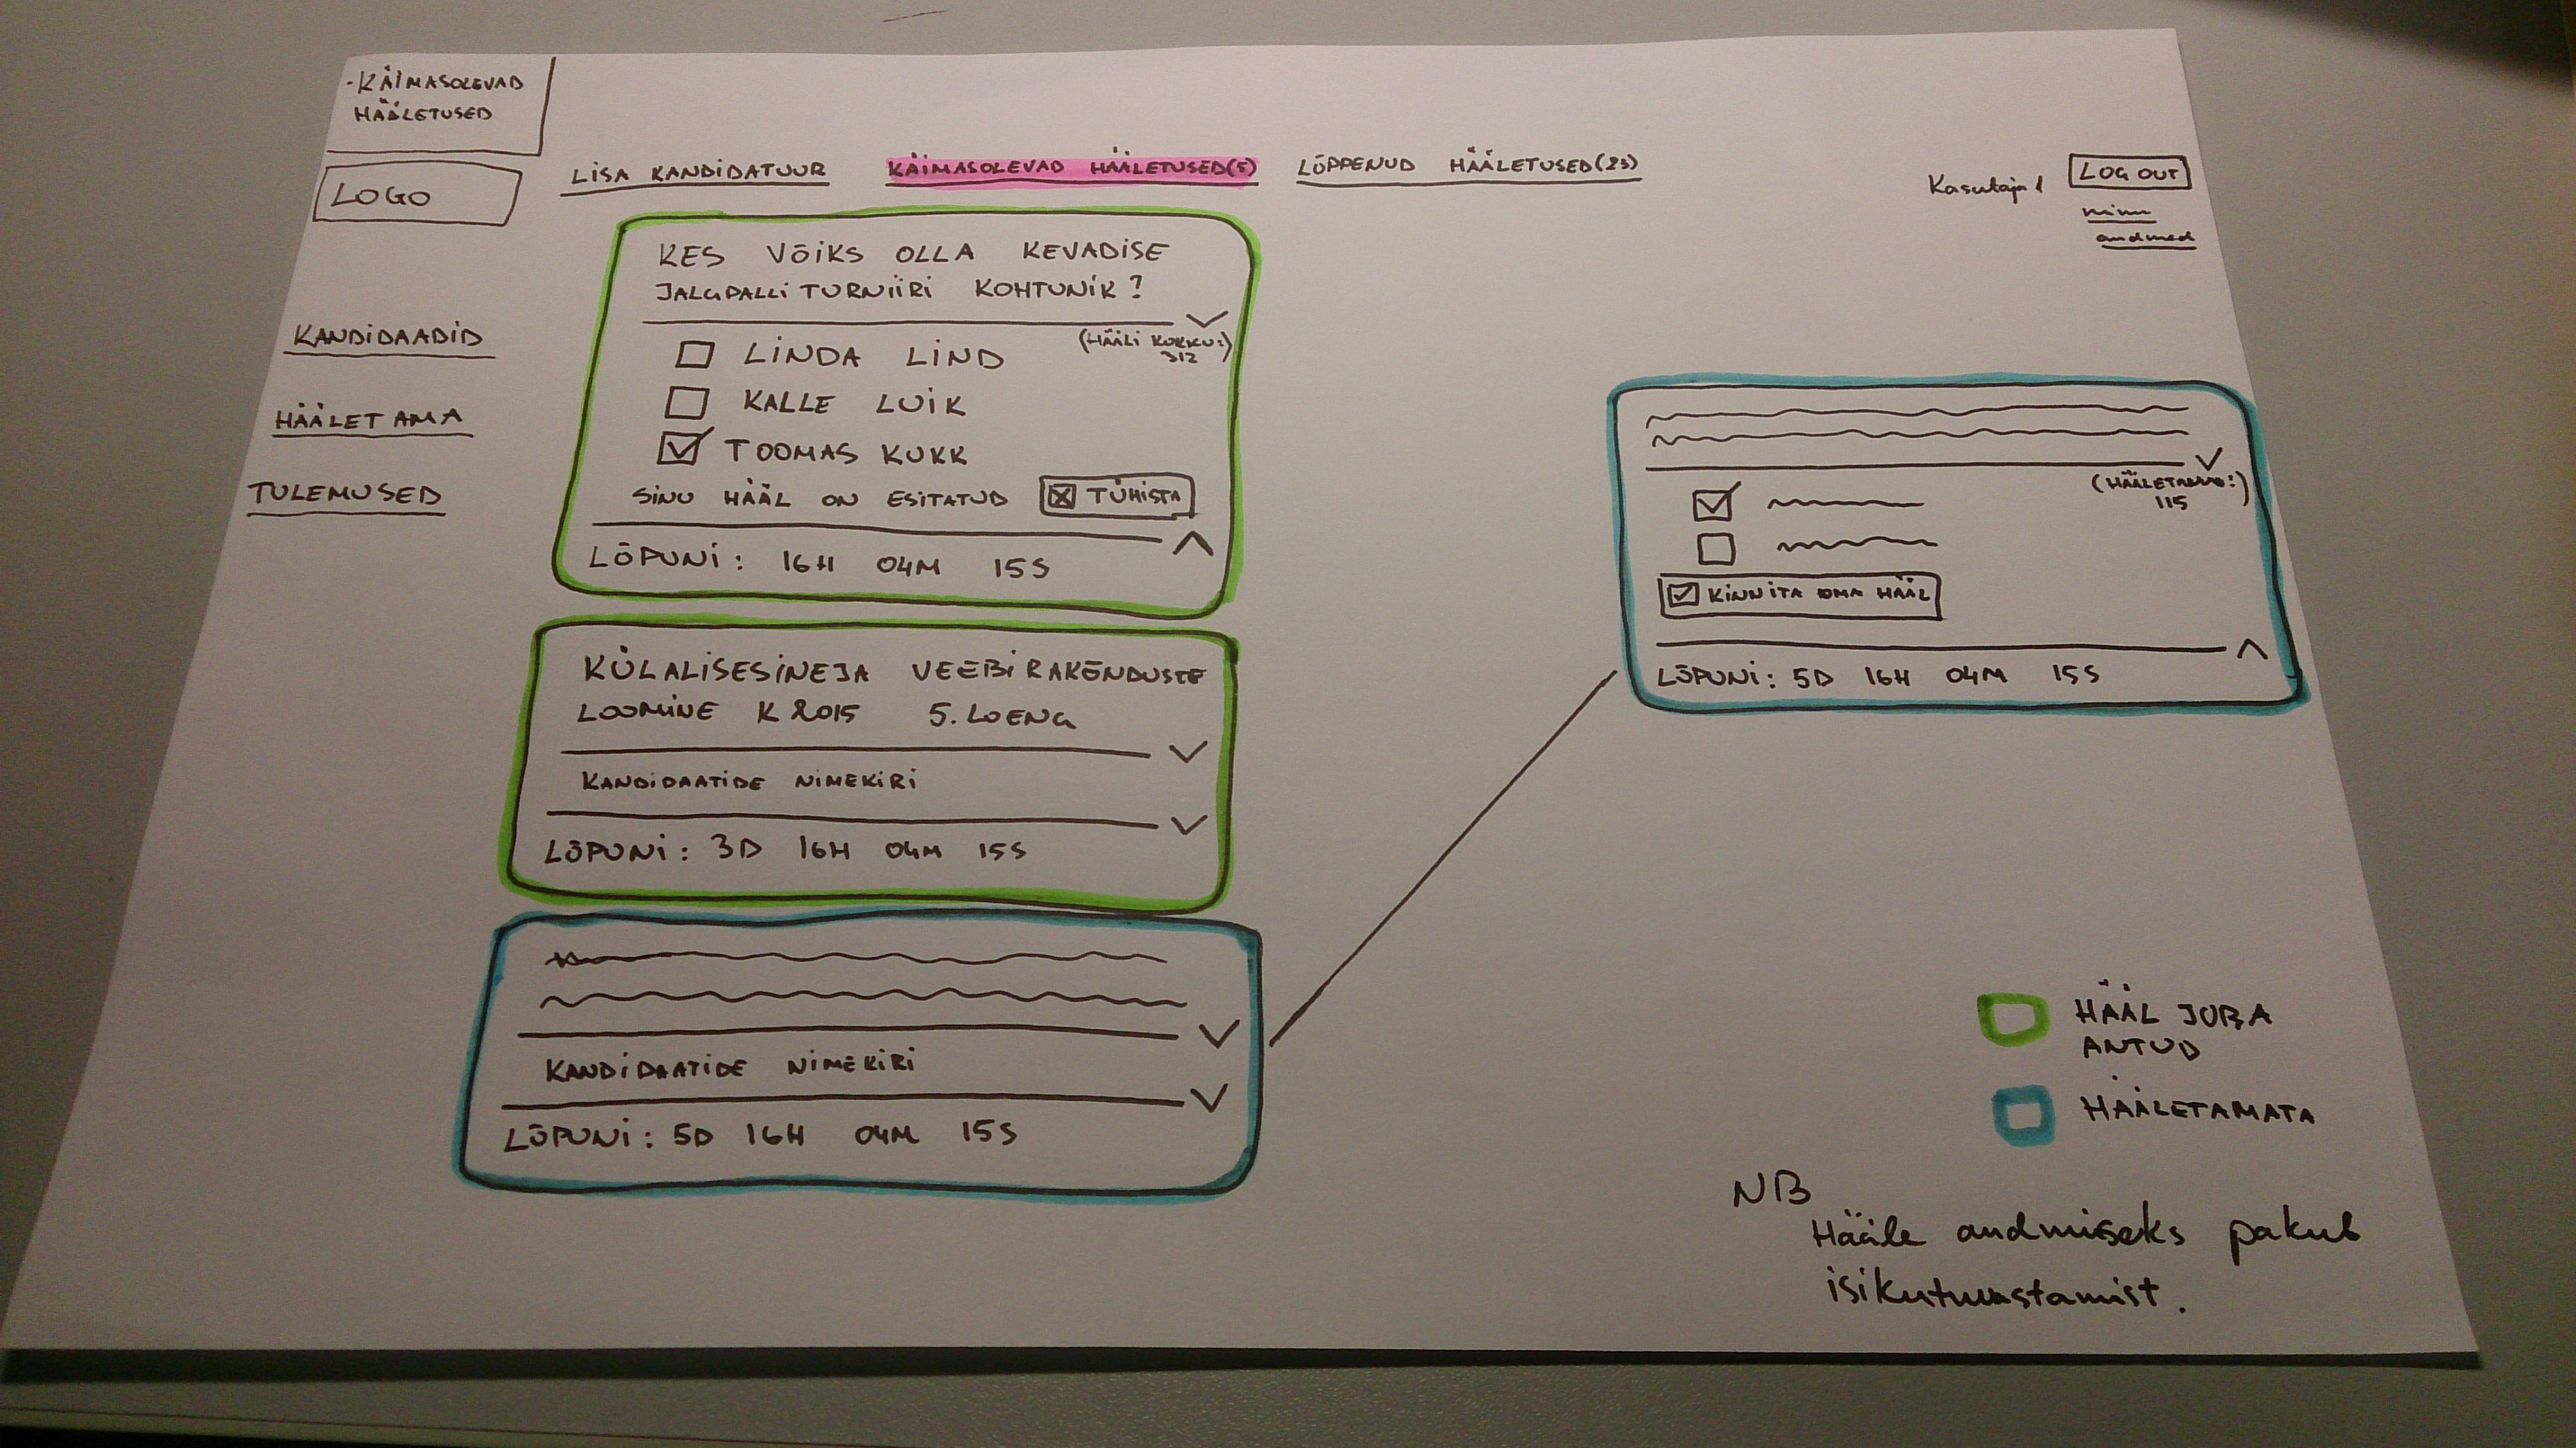 -KÄIMASOLEVAD
HÄÄLETUSED
LOGO
LISA KANDIDATUUR
KÄIMASOLEVAD HÄÄLETUSED(5)
LÕPPENUD HÄÄLETUSED(23)
Kasutaja 1
LOG OUT
minu
andmed
KANDIDAADID
HÄÄLETAMA
TULEMUSED
KES VÕIKS OLLA KEVADISE
JALGPALLI TURNIIRI KOHTUNIK?
(HÄÄLI KOKKU:
312)
LINDA LIND
KALLE LUIK
TOOMAS KUKK
SINU HÄÄL ON ESITATUD
TÜHISTA
LÕPUNI: 16H 04M 15S
KÜLALISESINEJA VEEBIRAKENDUSTE
LOOMINE K 2015 5. LOENG
KANDIDAATIDE NIMEKIRI
LÕPUNI: 3D 16H 04M 15S
KANDIDAATIDE NIMEKIRI
LÕPUNI: 5D 16H 04M 15S
115
KINNITA OMA HÄÄL
LÕPUNI: 5D 16H 04M 15S
HÄÄL JUBA
ANTUD
HÄÄLETAMATA
NB
Hääle andmiseks pakub
isikutuvastamist.